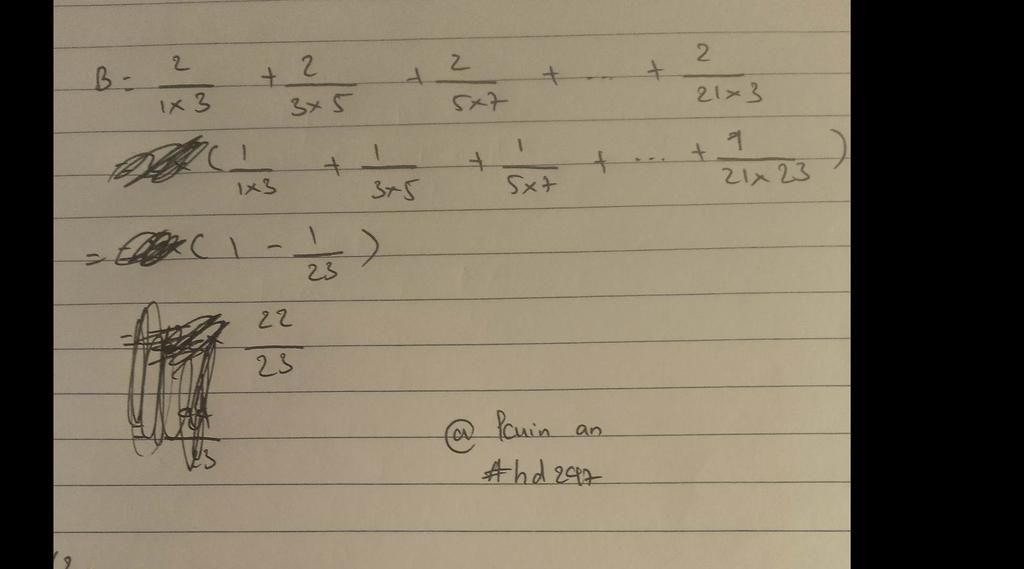 B = 2/1×3 + 2/3×5 + 2/5×7 + ... + 2/21×3
(1/1×3 + 1/3×5 + 1/5×7 + ... + 1/21×23)
= (1 - 1/23)
22/23
@ Pcuin an
#hd297